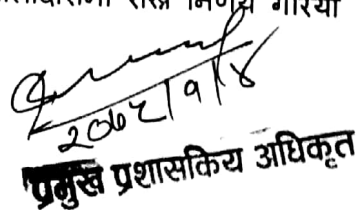 राख्ने निर्णय गरियो
२०७८|१|४
प्रमुख प्रशासकिय अधिकृत